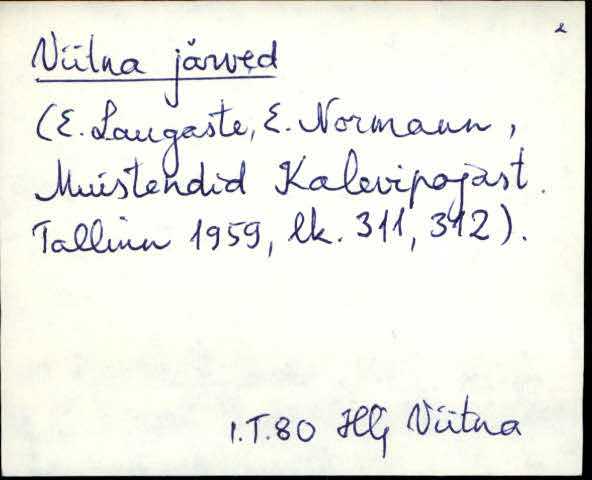 2
Viitna järved
(E. Laugaste, E. Normann,
Muistendid Kalevipojast.
Tallinn 1959, lk. 311, 312).
I.T.80 HlJ Viitna